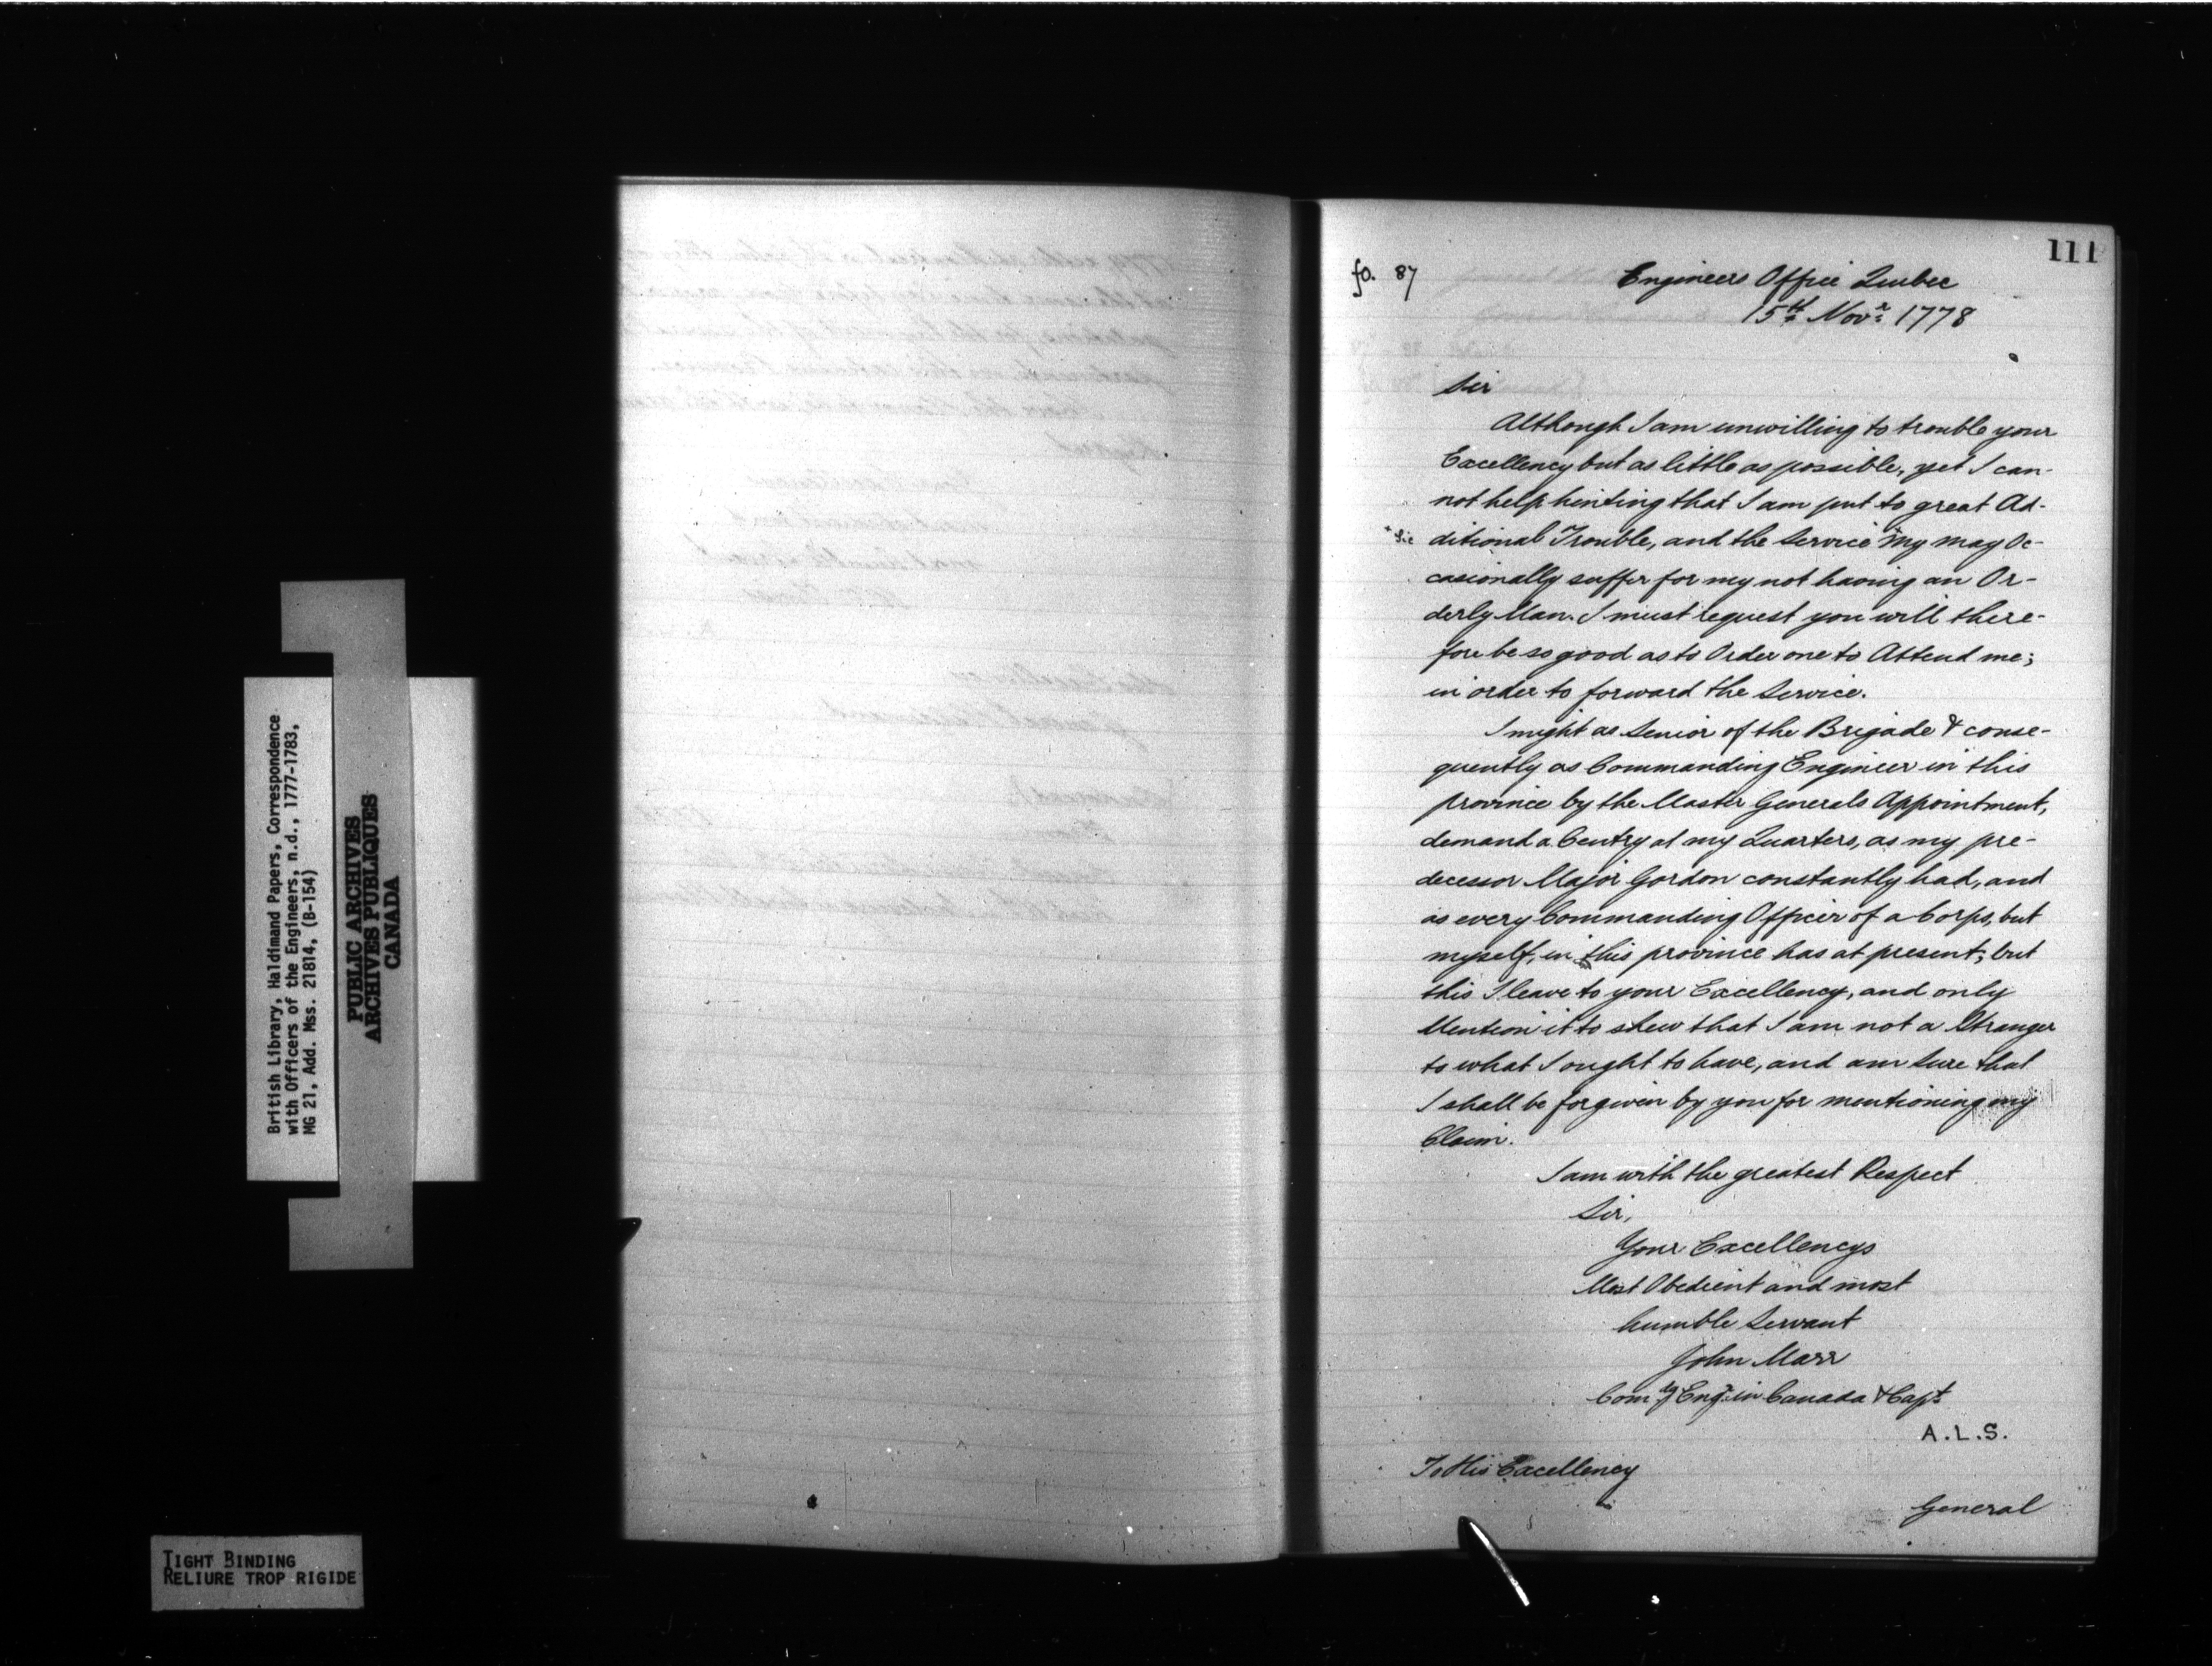 111
fo. 87
Engineers Office Quebec
15th Novr 1778
Sir
Although I am unwilling to trouble your
Excellency but as little as possible, yet I can-
not help hinting that I am put to great Ad-
+ Sic ditional Trouble, and the Service +my may Oc-
casionally suffer for my not having an Or-
derly Man. I must request you will there-
fore be so good as to Order one to Attend me;
in order to forward the Service.
I might as Senior of the Brigade & conse-
quently as Commanding Engineer in this
province by the Master Generals Appointment,
demand a Centry at my Quarters, as my pre-
decessor Major Gordon constantly had, and
as every Commanding Officer of a Corps, but
myself, in this province has at present; but
this I leave to your Excellency, and only
Mention it to shew that I am not a Stranger
to what I ought to have, and am sure that
I shall be forgiven by you for mentioning my
Claim.
I am with the greatest Respect
Sir,
Your Excellencys
Most Obedient and most
humble Servant
John Marr
Comdg Engr in Canada & Capt
A.L.S.
To His Excellency
General
British Library, Haldimand Papers, Correspondence
with Officers of the Engineers, n.d., 1777-1783,
MG 21, Add. Mss. 21814, (B-154)
PUBLIC ARCHIVES
ARCHIVES PUBLIQUES
CANADA
TIGHT BINDING
RELIURE TROP RIGIDE